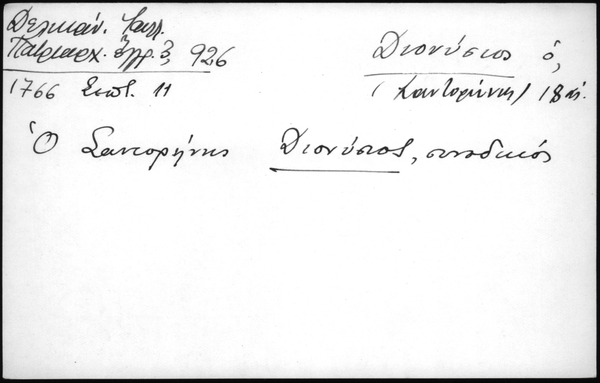 Δελικάν. Καλλ.
Πατριαρχ. Ἔγγρ. 3, 926
1766 Σεπτ. 11
Διονύσιος ὁ,
(Σαντορήνης) 18 αἰ.
Ὁ Σαντορήνης Διονύσιος, συνοδικός